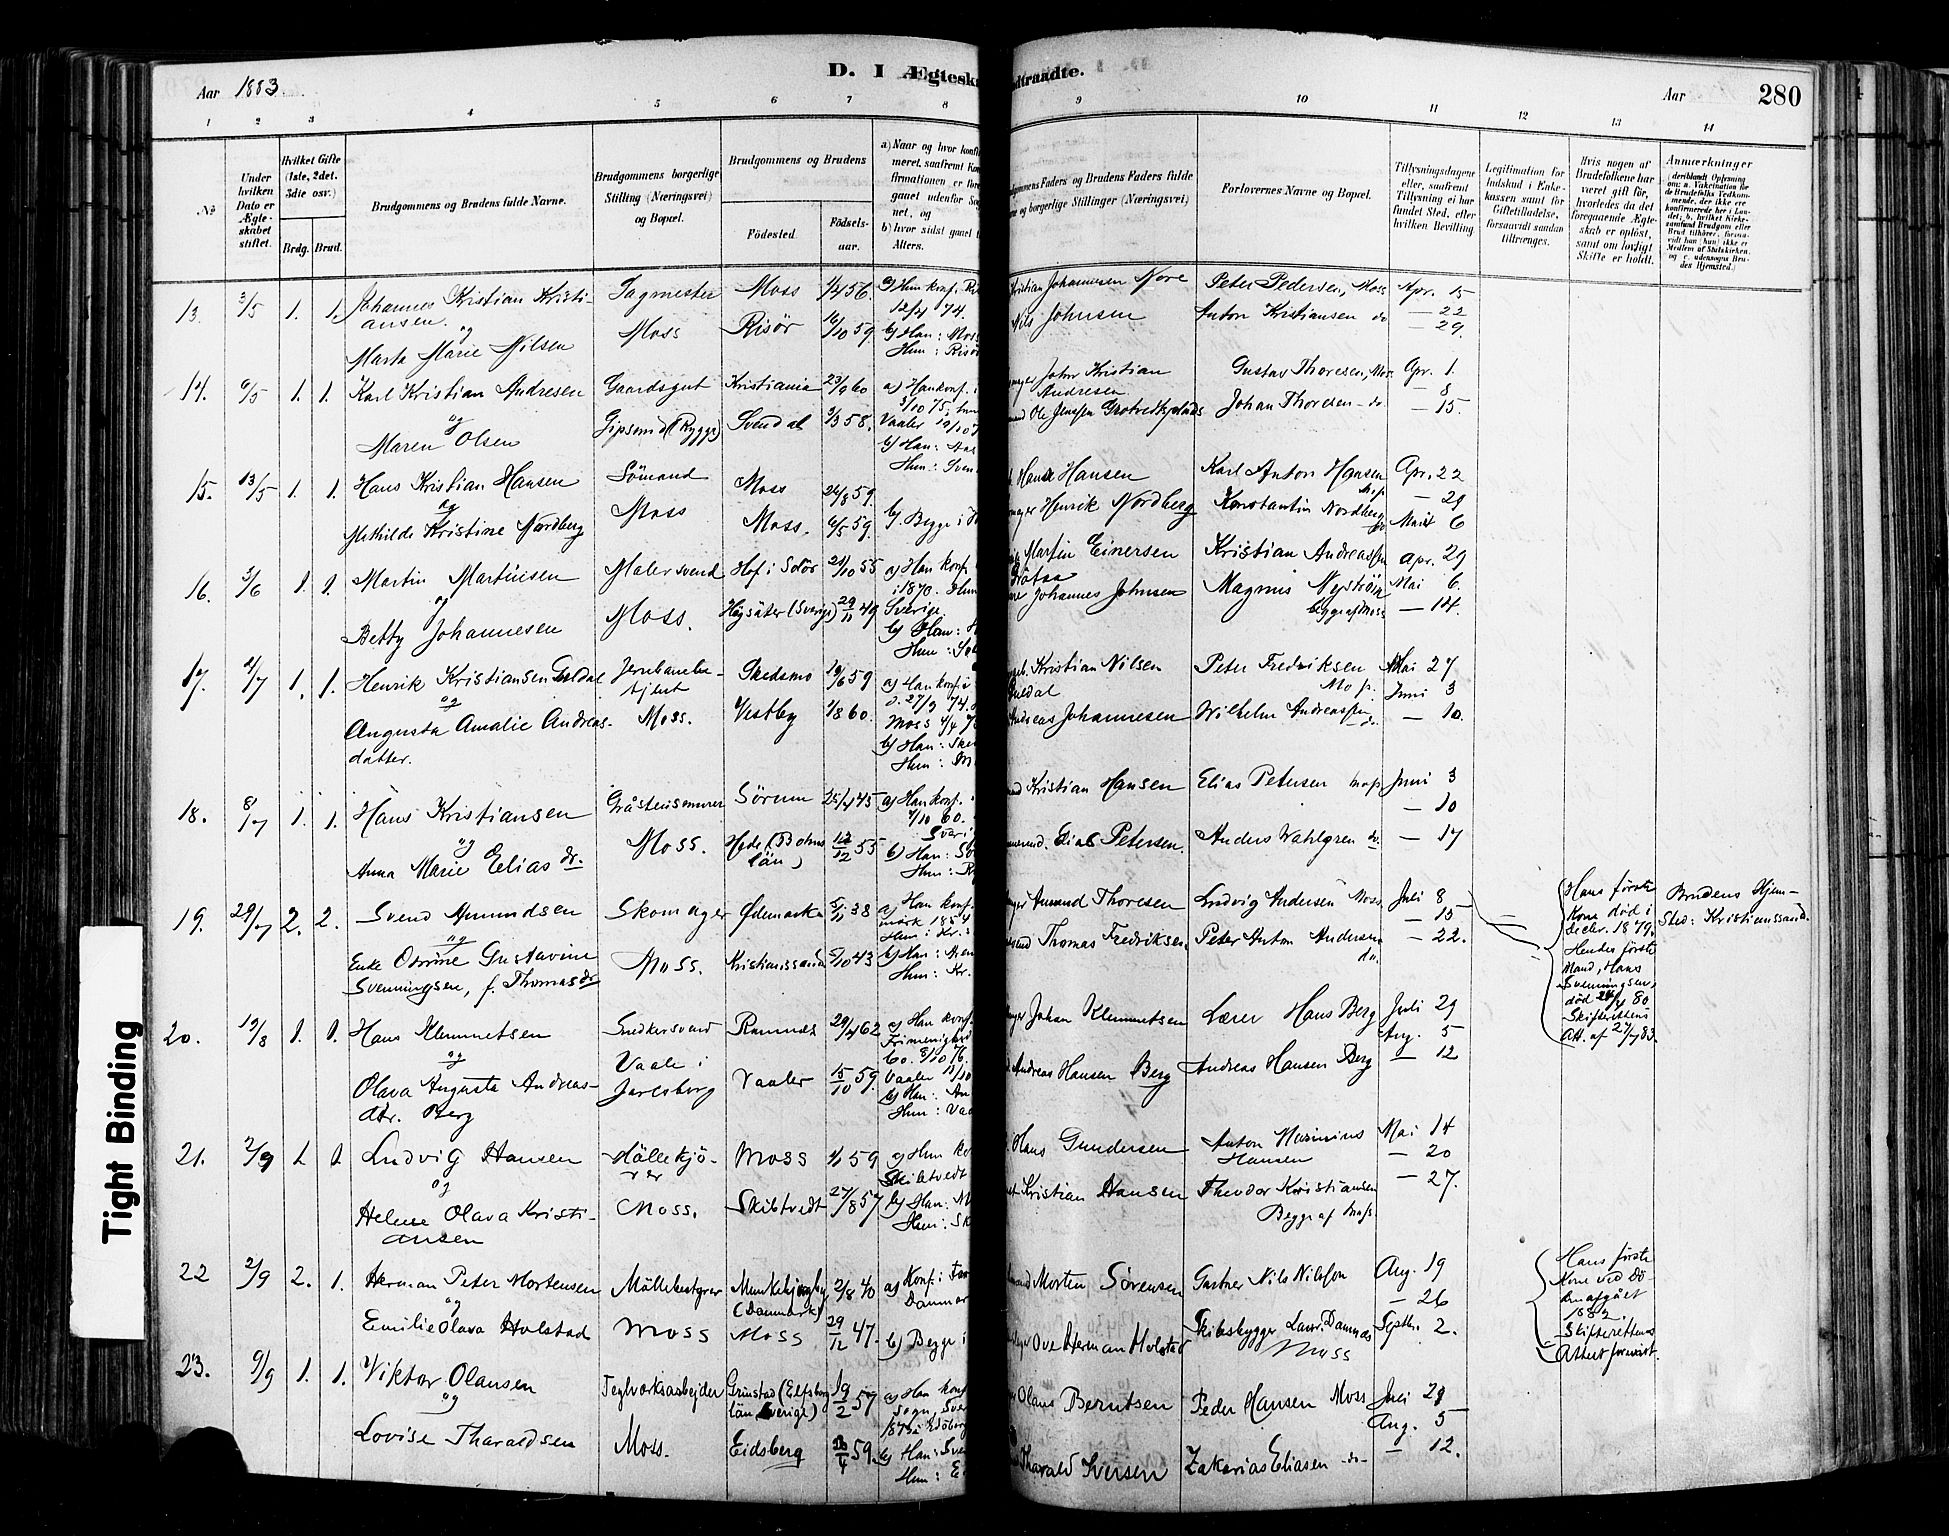 Aar 1883.
D. I Ægtesk
odtraadte.
Aar
280
1 2 3 4 5 6 7 8 9 10 11 12 13 14
No
Under hvilken Dato er Ægteskabet stiftet.
Hvilket Gifte (1ste, 2det. 3die osv.)
Brdg. Brud.
Brudgommens og Brudens fulde Navne.
Brudgommens borgerlige Stilling (Næringsvei) og Bopæl.
Brudgommens og Brudens
Födested.
Födsels-aar.
a) Naar og hvor konfi
meret, saafremt Kon
firmationen er fore
gaaet udenfor So
net, og
b) hvor sidst gaaet t
Alters.
dgommens Faders og Brudens Faders fulde
ne og borgerlige Stillinger (Næringsvei)
Forlovernes Navne og Bopæl.
Tillysningsdagene eller, saafremt Tillysning ei har fundet Sted, efter hvilken Bevilling
Legitimation for Indskud i Enkekassen samt for Giftetilladelse, forsaavidt saadan tiltrænges.
Hvis nogen af Brudefolkene har været gift för, hvorledes da det foregaaende Ægteskab er oplöst, samt om lovligt Skifte er holdt.
Anmærkninger
13. 3/5 1. 1. Johannes Kristian Kristi-
ansen.
og
Marta Marie Nilsen
Sagmester
Moss
Moss 1/4 56.
Risör 16/10 59
12/4 74.
b) Han: Moss
Hun: Risör
Kristian Johannesen Nore
Nils Johnsen
Peter Pedersen, Moss
Anton Kristiansen do
Apr. 15
— 22
— 29.
14. 6/5 1. 1. Karl Kristian Andresen
og
Maren Olsen
Gaardsgut
Gipsund (Rygge)
Kristiania 23/9 60
Svendal 3/3 58.
a) Han konf.
3/10 75,
Vaaler
b) Han:
Hun: Sven
John Kristian
Andresen
Ole Jenssen Grotvedtplads
Gustav Thoresen, Mos.
Johan Thoresen - do.
Apr. 1.
— 8
— 15.
15. 13/5 1. 1. Hans Kristian Hansen
og
Mathilde Kristine Nordberg
Sömand
Moss
Moss 24/8 59.
Moss. 6/5 59.
b) Begge i
Hans Hansen
Henrik Nordberg
Karl Anton Hansen
Konstantin Nordberg
Apr. 22
— 29
Mai 6
16. 3/6 1. 1. Martin Martinsen
og
Betty Johannesen
Malersvend
Moss.
Hof i Solör 21/10 55
Högsäter (Sverige) 29/11 49
a) Han konf.
i 1870. Hun
Sverige.
b) Han:
Hun:
Martin Einersen
Johannes Johnsen
Kristian Andreassen
Magnus Nyström
begge af Moss
Apr. 29
Mai 6.
— 14.
17. 2/7 1. 1. Henrik Kristiansen Guldal
og
Augusta Amalie Andreas-
datter.
Jernbanebe-
tjent
Moss.
Skedsmo 19/6 59
Vestby 1/8 60.
a) Han konf. i
Moss
b) Han: Ske
Hun: M
Kristian Nilsen
Guldal
Andreas Johannesen
Peter Fredriksen
Wilhelm Andreassen
do.
Mai 27
Juni 3
— 10.
18. 8/7 1. 1. Hans Kristiansen
og
Anna Marie Elias dr.
Gråstensmurer
Moss.
Sörum 25/4 45
Hede (Bohus
län) 12/12 55
a) Han konf.
60.
b) Han:
Hun:
Kristian Hansen
Elias Petersen.
Elias Petersen
Anders Wahlgren do.
Juni 3
— 10
— 17
19. 29/7 2. 2. Svend Amundsen
og
Enke Gustavine
Svenningsen, f. Thomasdr
Skomager
Moss.
Ödemark 5/11 38
Kristianssand 5/10 43
a) Han konf.
mark 1854
Hun i Kr.
b) Han:
Hun: Kr.
Amund Thoresen
Thomas Fredriksen
Ludvig Andersen Moss.
Peter Anton Andersen
do.
Juli 8
— 15
— 22.
Hans förste
Kone död i
Decbr. 1879.
Hendes förste
Mand, Hans
Svenningsen,
död 80
Skifterettens
Att. af 27/7 83.
Brudens Hjem-
sted: Kristianssand.
20. 19/8 1. 1. Hans Klemmetsen
og
Olava Augusta Andreas-
dtr. Berg
Snedkersvend
Vaale i
Jarlsberg
Ramnes 29/4 62
Vaaler 15/10 59.
a) Han konf.
Frimenighed
8/10 76.
Vaaler
b) Han:
Hun: Vaa
Johan Klemmetsen
Andreas Hansen Berg
Lærer Hans Berg
Andreas Hansen Berg
Juli 29
Aug. 5
— 12
21. 2/9 1. 1. Ludvig Hansen
og
Helene Olava Kristi-
ansen
Möllekjö-
rer
Moss.
Moss 59
Skibtvedt 27/8 57
Skibtvedt
b) Han: M
Hun: Sk
Hans Gundersen
Kristian Hansen
Anton Marinius
Hansen
Theodor Kristiansen
Begge af Moss.
Mai 14
— 20
— 27.
22 2/9 2. 1. Herman Peter Mortensen
og
Emilie Olava Holstad
Möllebestyrer
Moss
Munkebjergby
(Danmark) 2/8 40
Moss 29/12 47.
a) Konf. i
Danmar
b) Begge i
Morten Sörensen
Ove Herman Holstad
Gartner Nils Nilsson
Skibsbygger Laur. Damnæs
Moss
Aug. 19
— 26
Septbr. 2.
Hans förste
Kone ved Dö-
den afgået
1882.
Skifterettens
Attest forevist.
23. 9/9 1. 1. Viktor Olausen
og
Lovise Tharaldsen
Teglværksarbejder
Moss.
Grinstad (Elfsborg
län, Sverige) 19/2 57
Eidsberg 59.
a) Han konf
sogn, Sver
b) Han:
Hun: E
Olaus Berntsen
Tharald Iversen
Peder Hansen Moss
Zakarias Eliasen -do-
Juli 29
Aug. 5
— 12.
Tight Binding